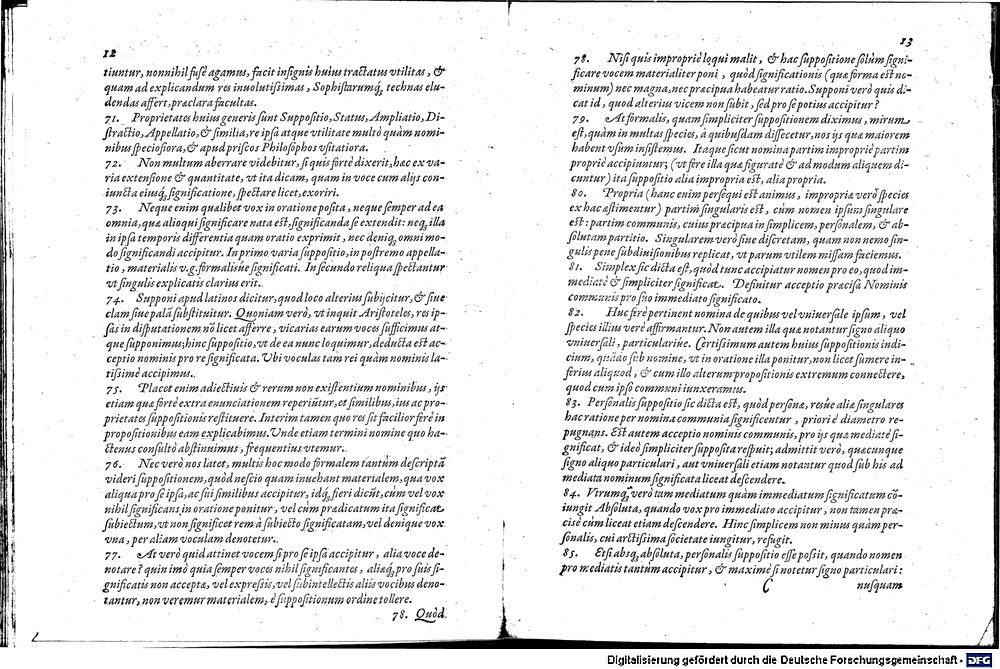 12
tiuntur, nonnihil fusè agamus, facit insignis huius tractatus vtilitas, &
quam ad explicandum res inuolutissimas, Sophistarumq́, technas elu-
dendas affert, præclara facultas.
71. Proprietates huius generis sunt Suppositio, Status, Ampliatio, Di-
stractio, Appellatio, & similia, re ipsa atque vtilitate multò quàm nomi-
nibus speciosiora, & apud priscos Philosophos vsitatiora.
72. Non multum aberrare videbitur, si quis fortè dixerit, hæc ex va-
ria extensione & quantitate, vt ita dicam, quam in voce cum alijs con-
iuncta eiusq́, significatione, spectare licet, exoriri.
73. Neque enim quælibet vox in oratione posita, neque semper ad ea
omnia, quæ alioqui significare nata est, significanda se extendit: neq, illa
in ipsa temporis differentia quam oratio exprimit, nec deniq, omni mo-
do significandi accipitur. In primo varia suppositio, in postremo appella-
tio, materialis v.g. formalisúe significati. In secundo reliqua spectantur
vt singulis explicatis clarius erit.
74. Supponi apud latinos dicitur, quod loco alterius subijcitur, & siue
clam siue palā substituitur. Quoniam verò, vt inquit Aristoteles, res ip-
sas in disputationem nō licet afferre, vicarias earum voces sufficimus at-
que supponimus; hinc suppositio, vt de ea nunc loquimur, deducta est ac-
ceptio nominis pro re significata. Vbi voculas tam rei quàm nominis la-
tissimè accipimus.
75. Placet enim adiectiuis & rerum non existentium nominibus, ijs
etiam quæ fortè extra enunciationem reperiūtur, et similibus, ius ac pro-
prietates suppositionis restituere. Interim tamen quo res sit facilior ferè in
propositionibus eam explicabimus. Vnde etiam termini nomine quo ha-
ctenus consultò abstinuimus, frequentius vtemur.
76. Nec verò nos latet, multis hoc modo formalem tantùm descriptā
videri suppositionem, quòd nescio quam inuehant materialem, qua vox
aliqua pro se ipsa, ac sui similibus accipitur, idq́, fieri dicūt, cùm vel vox
nihil significans in oratione ponitur, vel cùm prædicatum ita significat
subiectum, vt non significet rem à subiecto significatam, vel denique vox
vna, per aliam voculam denotetur.
77. At verò quid attinet vocem si pro se ipsa accipitur, alia voce de-
notare? quin imò quia semper voces nihil significantes, aliæq́, pro suis si-
gnificatis non acceptæ, vel expressis, vel subintellectis alijs vocibus deno-
tantur, non veremur materialem, è suppositionum ordine tollere.
78. Quòd
13
78. Nisi quis impropriè loqui malit, & hac suppositione solùm signi-
ficare vocem materialiter poni, quòd significationis (quæ forma est no-
minum) nec magna, nec præcipua habeatur ratio. Supponi verò quis di-
cat id, quod alterius vicem non subit, sed pro se potius accipitur?
79. At formalis, quam simpliciter suppositionem diximus, mirum
est, quàm in multas species, à quibusdam dissecetur, nos ijs quæ maiorem
habent vsum insistemus. Itaque sicut nomina partim impropriè partim
propriè accipiuntur; (vt fere illa quæ figuratè & ad modum aliquem di-
cuntur) ita suppositio alia impropria est, alia propria.
80. Propria (hanc enim persequi est animus, impropriæ verò species
ex hac æstimentur) partim singularis est, cùm nomen ipsum singulare
est: partim communis, cuius præcipua in simplicem, personalem, & ab-
solutam partitio. Singularem verò siue discretam, quam non nemo sin-
gulis pene subdiuisionibus replicat, vt parum vtilem missam faciemus.
81. Simplex sic dicta est, quòd tunc accipiatur nomen pro eo, quod im-
mediatè & simpliciter significat. Definitur acceptio præcisa Nominis
communis pro suo immediato significato.
82. Huc ferè pertinent nomina de quibus vel vniuersale ipsum, vel
species illius verè affirmantur. Non autem illa quæ notantur signo aliquo
vniuersali, particulariúe. Certissimum autem huius suppositionis indi-
cium, quādo sub nomine, vt in oratione illa ponitur, non licet sumere in-
ferius aliquod, & cum illo alterum propositionis extremum connectere,
quod cum ipso communi iunxeramus.
83. Personalis suppositio sic dicta est, quòd personæ, resúe aliæ singulares
hac ratione per nomina communia significentur, priori è diametro re-
pugnans. Est autem acceptio nominis communis, pro ijs quæ mediatè si-
gnificat, & ideò simpliciter supposita respuit; admittit verò, quæcunque
signo aliquo particulari, aut vniuersali etiam notantur quod sub his ad
mediata nominum significata liceat descendere.
84. Vtrumq́, verò tam mediatum quàm immediatum significatum cō-
iungit Absoluta, quando vox pro immediato accipitur, non tamen præ-
cisè cùm liceat etiam descendere. Hinc simplicem non minus quàm per-
sonalis, cui arctissima societate iungitur, refugit.
85. Etsi absq́, absoluta, personalis suppositio esse possit, quando nomen
pro mediatis tantum accipitur, & maximè si notetur signo particulari:
C nusquam
Digitalisierung gefördert durch die Deutsche Forschungsgemeinschaft - DFG